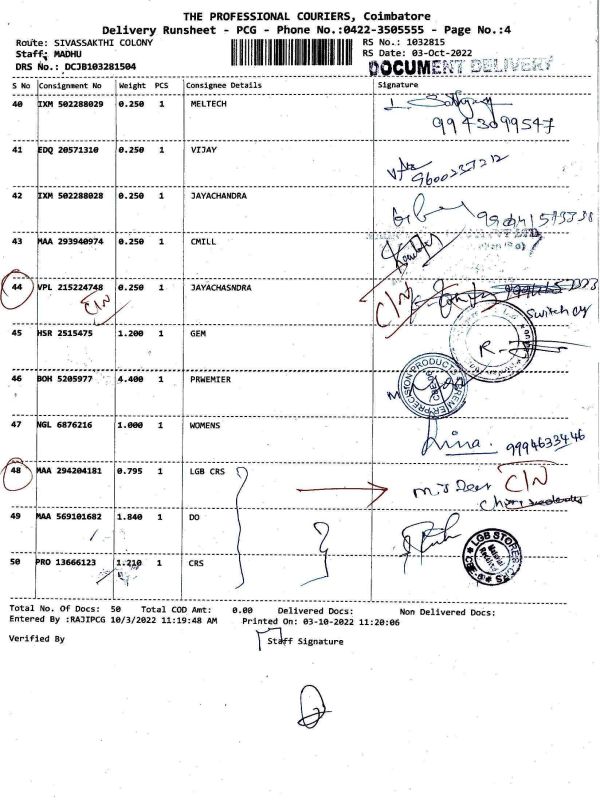 THE PROFESSIONAL COURIERS, Coimbatore
Delivery Runsheet - PCG - Phone No.:0422-3505555 - Page No.:4
Route: SIVASSAKTHI COLONY RS No.: 1032815
Staff: MADHU RS Date: 03-Oct-2022
DRS No.: DCJB103281504 DOCUMENT DELIVERY
S No Consignment No Weight PCS Consignee Details Signature
40 IXM 502288029 0.250 1 MELTECH
9943099547
41 EDQ 20571310 0.250 1 VIJAY
9600237212
42 IXM 502288028 0.250 1 JAYACHANDRA
43 MAA 293940974 0.250 1 CMILL
44 VPL 215224748 0.250 1 JAYACHASNDRA
C/N C/N
Switch off
45 HSR 2515475 1.200 1 GEM
46 BOH 5205977 4.400 1 PRWEMIER
PREMIER PRECISION PRODUCTS
47 NGL 6876216 1.000 1 WOMENS
9994633446
48 MAA 294204181 0.795 1 LGB CRS
C/N
49 MAA 569101682 1.840 1 DO
LGB STORES CRS
Material Received
50 PRO 13666123 1.210 1 CRS
Total No. Of Docs: 50 Total COD Amt: 0.00 Delivered Docs: Non Delivered Docs:
Entered By :RAJIPCG 10/3/2022 11:19:48 AM Printed On: 03-10-2022 11:20:06
Verified By Staff Signature